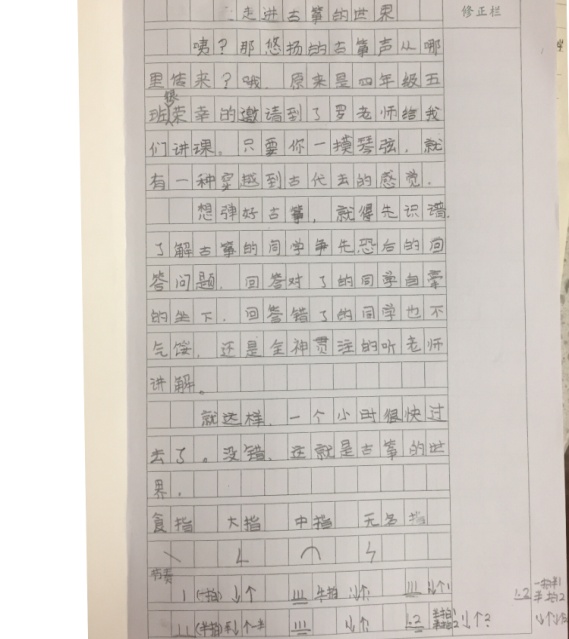 走进古筝的世界
修正栏
咦？那悠扬的古筝声从哪
里传来？哦，原来是四年级五
班很荣幸的邀请到了罗老师给我
们讲课。只要你一摸琴弦，就
有一种穿越到古代去的感觉。
想弹好古筝，就得先识谱，
了解古筝的同学争先恐后的回
答问题，回答对了的同学自豪
的坐下，回答错了的同学也不
气馁，还是全神贯注的听老师
讲解。
就这样，一个小时很快过
去了。没错，这就是古筝的世
界。
食指 大指 中指 无名指
节奏
(一拍) ↓↑ 半拍 ↓↑